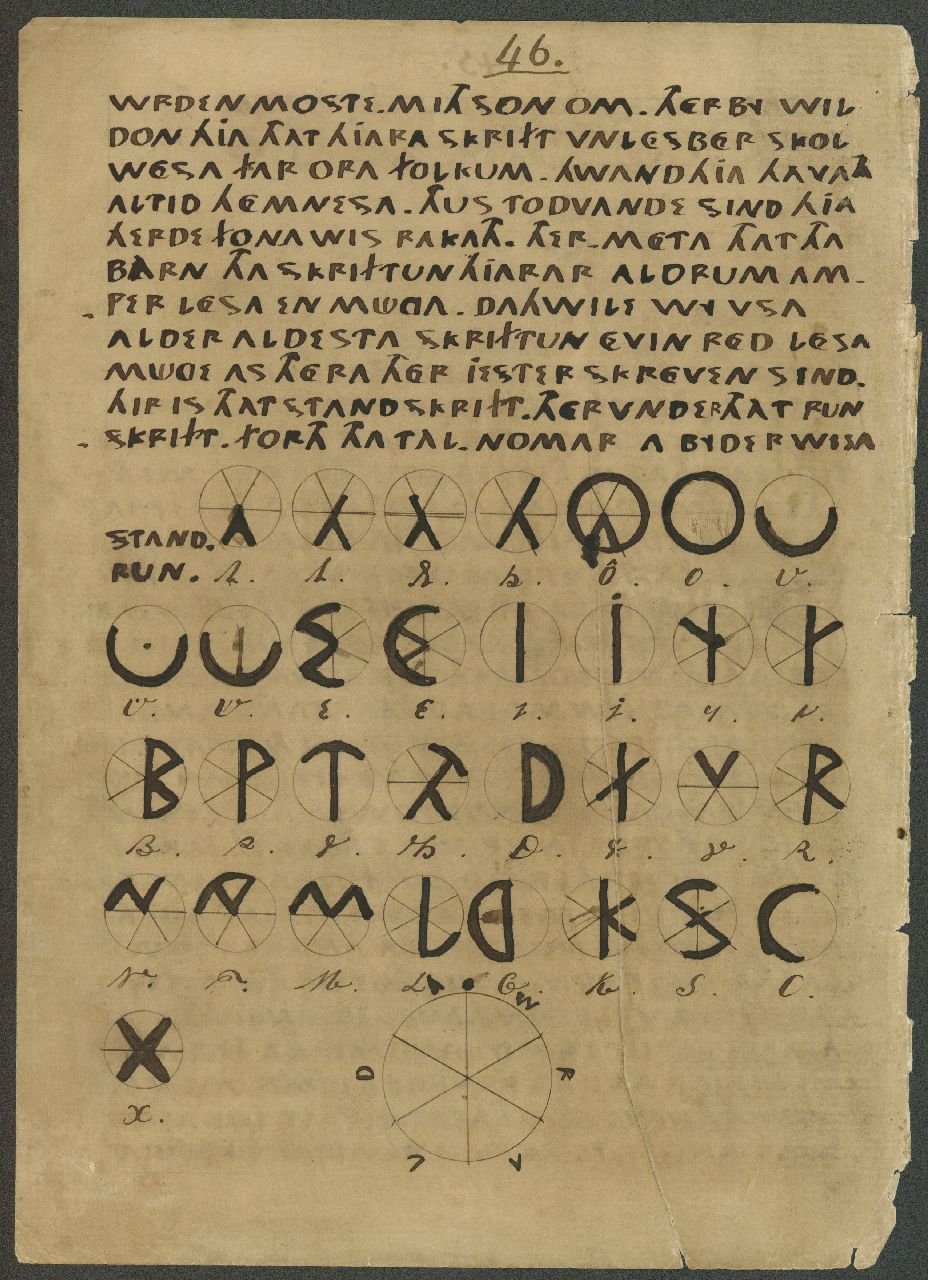 46.
WRDEN MOSTE. MITH SON OM. THER BY WIL
DON HJA THAT HJARA SKRIFT VNLESBER SKOL
WESA FAR ORA FOLKUM. HWAND HJA HAVATH
ALTID HEMNESA. THUS TO DVANDE SIND HJA
HERDE FON A WIS RAKATH. THER-META THAT THA
BARN THA SKRIFTUN HJARAR ALDRUM AM-
PER LESA EN MÜGA. DAHWILE WY VSA
ALDER ALDESTA SKRIFTUN EVIN RED LESA
MÜGE AS THERA THER JESTER SKREVEN SIND.
HIR IS THAT STAND SKRIFT. THER VNDER THAT RUN
SKRIFT. FORTH THA TAL-NOMAR A BYDER WISA
STAND.
RUN. Ô. O. U.
B P T TH D F V R
B. P. T. Th. D. F. V. R.
N NG M L G K S C
N. M. L. G. K. S. C.
X
X.